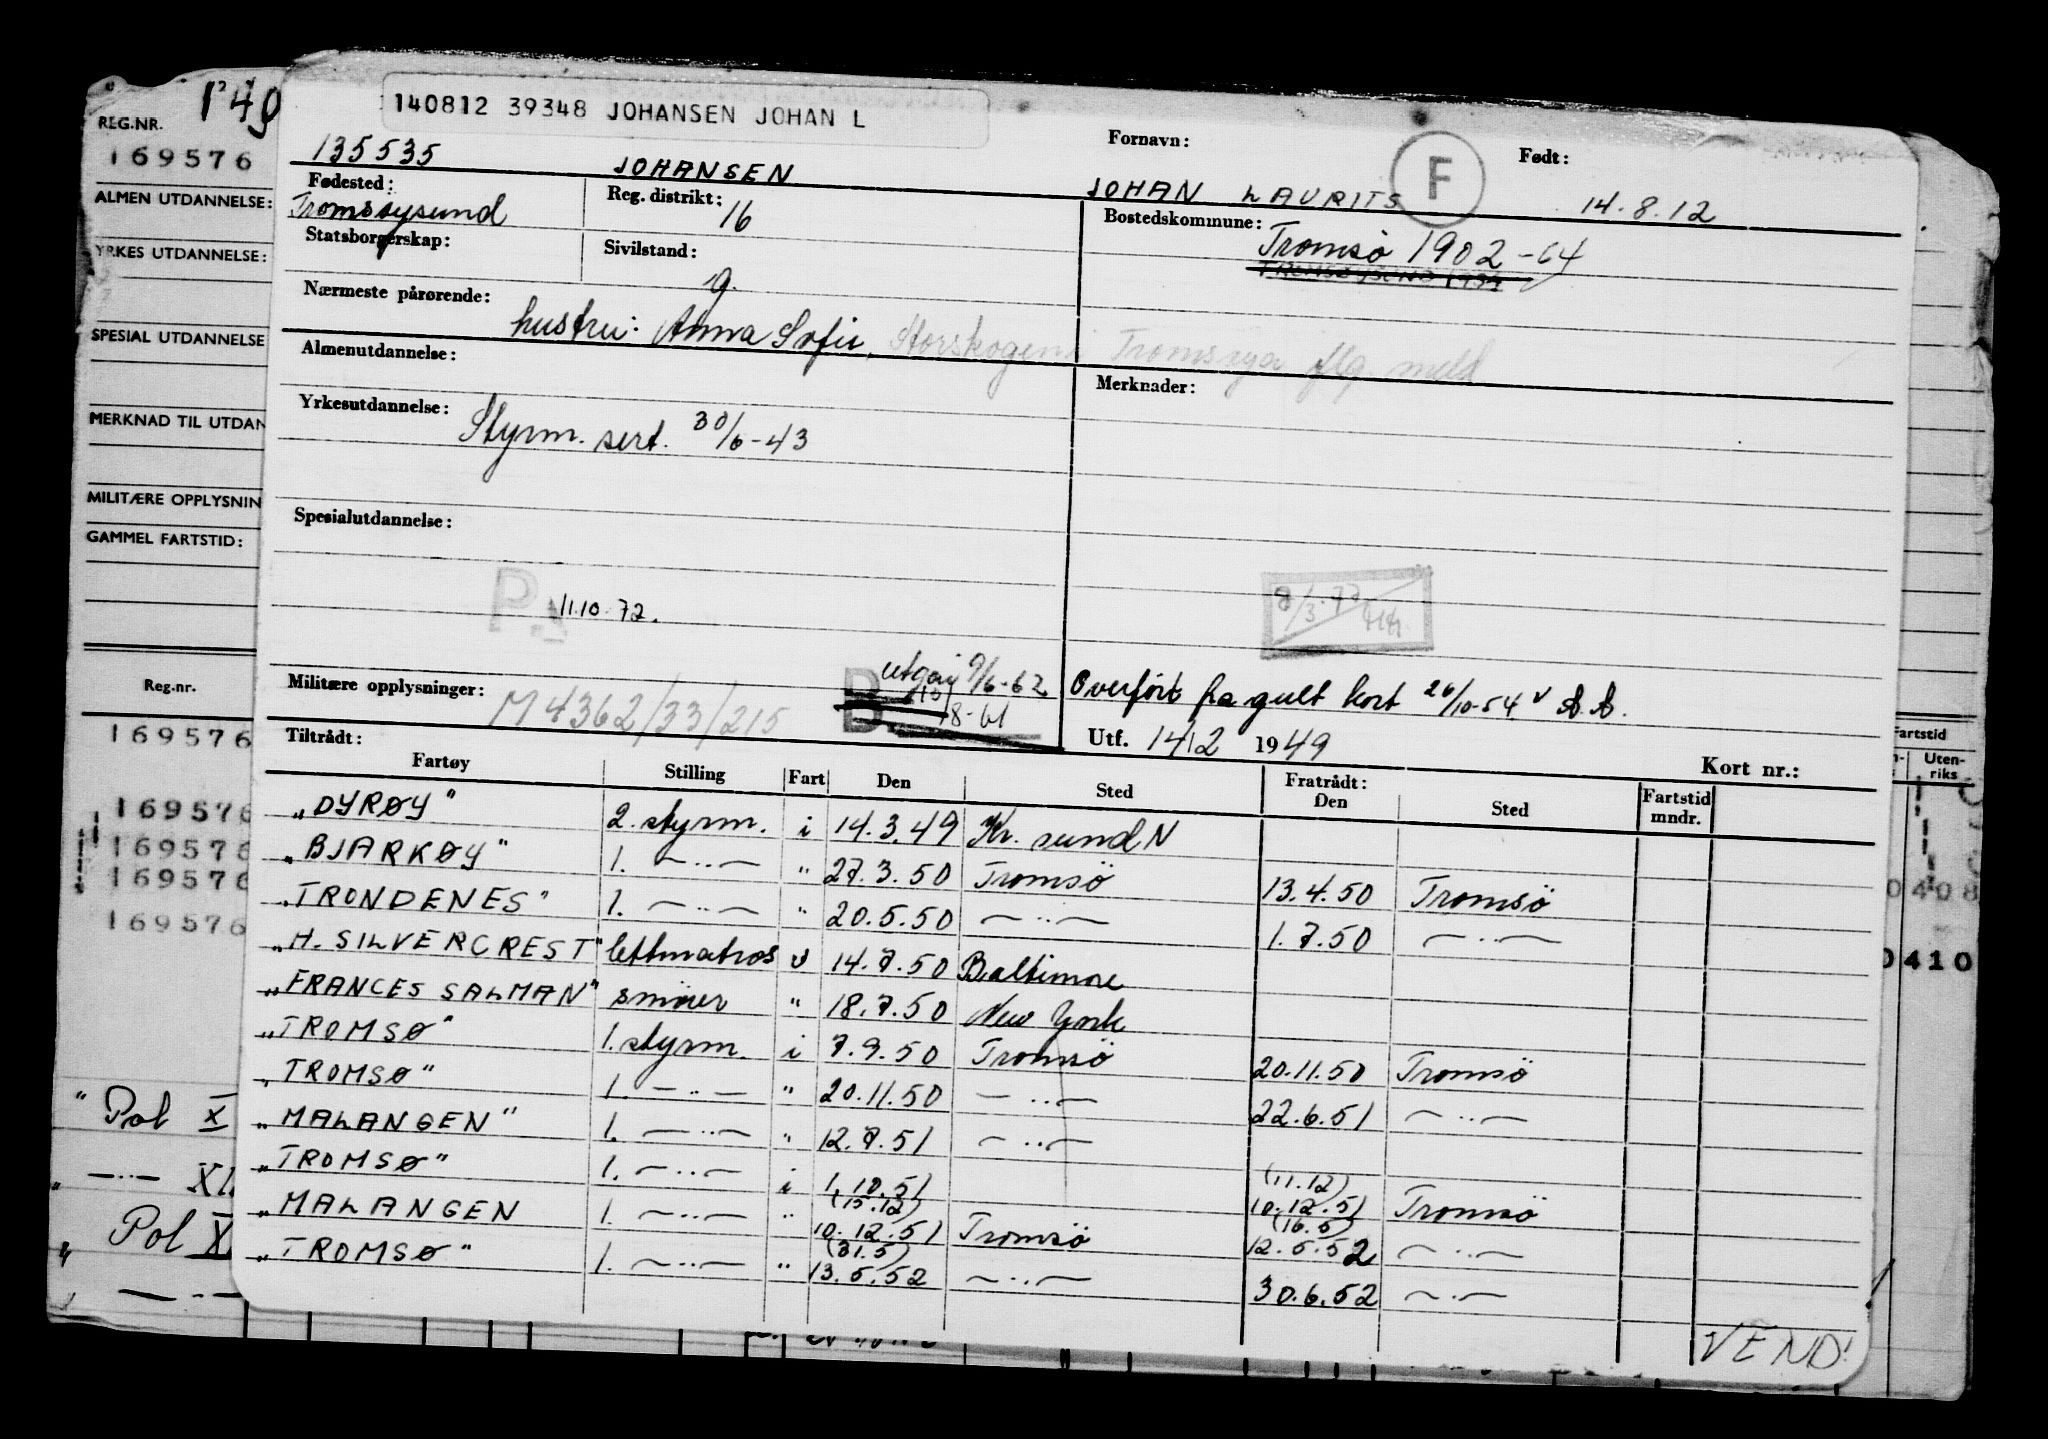 1'49
REG.NR.
169576
ALMEN UTDANNELSE:
YRKES UTDANNELSE:
SPESIAL UTDANNELSE
MERKNAD TIL UTDAN
MILITÆRE OPPLYSNIN
GAMMEL FARTSTID:
Reg.nr.
169576
169576
169576
169576
169576
" Pol X
" —··— XI
" Pol X
" —··—
140812 39348 JOHANSEN JOHAN L
135535 JOHANSEN Fornavn: JOHAN LAURITS F Født: 14.8.12
Fødested: Tromsøysund Reg. distrikt: 16 Bostedskommune: Tromsø 1902-64
TROMSØYSUND 1934
Statsborgerskap: Sivilstand: g.
Nærmeste pårørende: hustru: Anna Sofie, Storskogen, Tromsøya flg. meld
Almenutdannelse: Merknader:
Yrkesutdannelse: Styrm. sert. 30/6-43
Spesialutdannelse:
P. 11.10.72.
8/3.72
Militære opplysninger: M4362/33/215 B utgår 9/6-62
8-61
Overført fra gult kort 26/10-54 v A.A.
Utf. 14/2 1949 Kort nr.:
Tiltrådt: Fratrådt:
Fartøy Stilling Fart Den Sted Den Sted Fartstid mndr.
"DYRØY" 2. styrm. i 14.3.49 Kr. sund N
"BJARKØY" 1. —··— " 27.3.50 Tromsø 13.4.50 Tromsø
"TRONDENES" 1. —··— " 20.5.50 —··— 1.7.50 —··—
"H. SILVERCREST" lettmatros u 14.7.50 Baltimore
"FRANCES SALMAN" smører " 18.7.50 New York
"TROMSØ" 1. styrm. i 7.9.50 Tromsø 20.11.50 Tromsø
"TROMSØ" 1. —··— " 20.11.50 —··— 22.6.51 —··—
"MALANGEN" 1. —··— " 12.7.51 —··—
"TROMSØ" 1. —··— i 1.10.51 (11.12) 10.12.51 Tromsø
"MALANGEN 1. —··— " (15.12) 10.12.51 Tromsø (16.5) 12.5.52 —··—
"TROMSØ" 1. —··— " (31.5) 13.5.52 —··— 30.6.52 —··—
VEND!
Fartstid
Uten-
riks
0408
0410